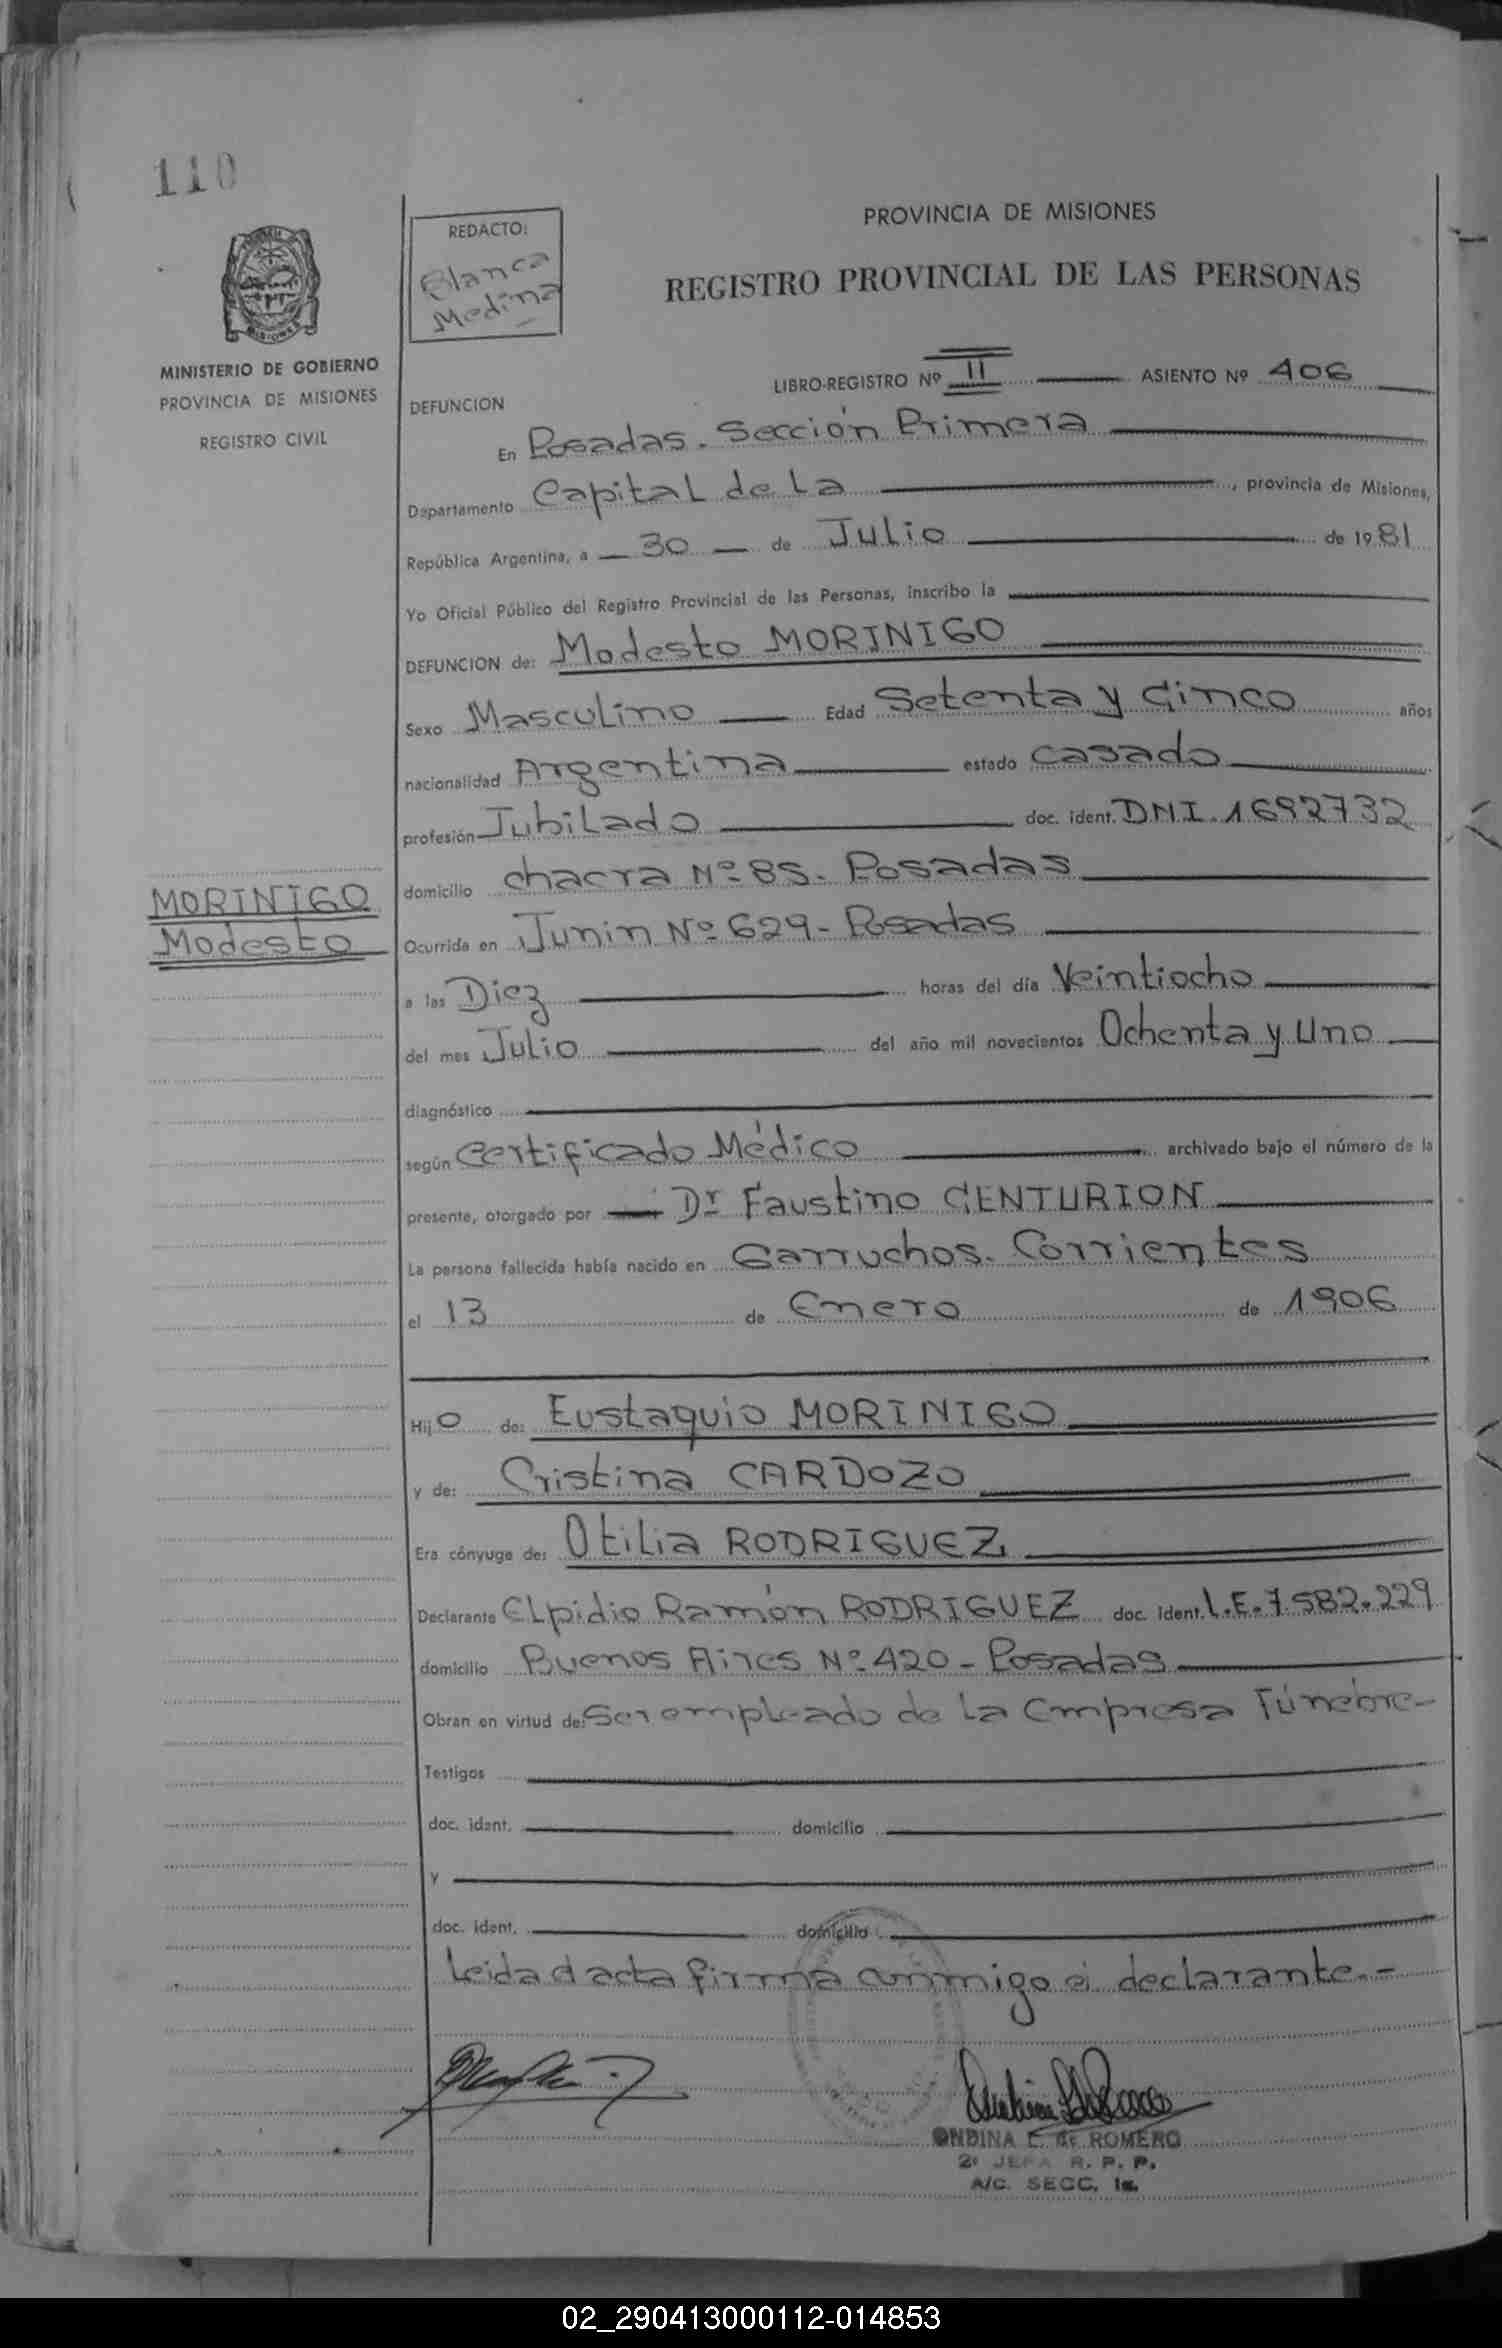 110
REDACTO:
Blanca
Medina
PROVINCIA DE MISIONES
REGISTRO PROVINCIAL DE LAS PERSONAS
MISIONES
MINISTERIO DE GOBIERNO
PROVINCIA DE MISIONES
REGISTRO CIVIL
LIBRO-REGISTRO Nº II ASIENTO Nº 406
DEFUNCION
En Posadas. Sección Primera
Departamento Capital de La , provincia de Misiones,
República Argentina, a 30 de Julio de 1981
Yo Oficial Público del Registro Provincial de las Personas, inscribo la
DEFUNCION de: Modesto MORINIGO
Sexo Masculino Edad Setenta y Cinco años
nacionalidad Argentina estado Casado
profesión Jubilado doc. ident. DNI. 1692732
domicilio chacra Nº 85. Posadas
MORINIGO
Modesto
Ocurrida en Junin Nº 629- Posadas
a las Diez horas del día Veintiocho
del mes Julio del año mil novecientos Ochenta y Uno
diagnóstico
según Certificado Médico archivado bajo el número de la
presente, otorgado por Dr Faustino CENTURION
La persona fallecida había nacido en Garruchos. Corrientes
el 13 de Enero de 1906
Hijo de: Eustaquio MORINIGO
y de: Cristina CARDOZO
Era cónyuge de: Otilia RODRIGUEZ
Declarante Elpidio Ramón RODRIGUEZ doc. ident. L.E. 7582.229
domicilio Buenos Aires Nº 420- Posadas
Obran en virtud de: Ser empleado de la Empresa Fúnebre-
Testigos
doc. ident. domicilio
y
doc. ident. domicilio
Leida el acta firma conmigo el declarante.-
ONDINA E. de ROMERO
2º JEFA R. P. P.
A/C. SECC. 1a.
02_290413000112-014853